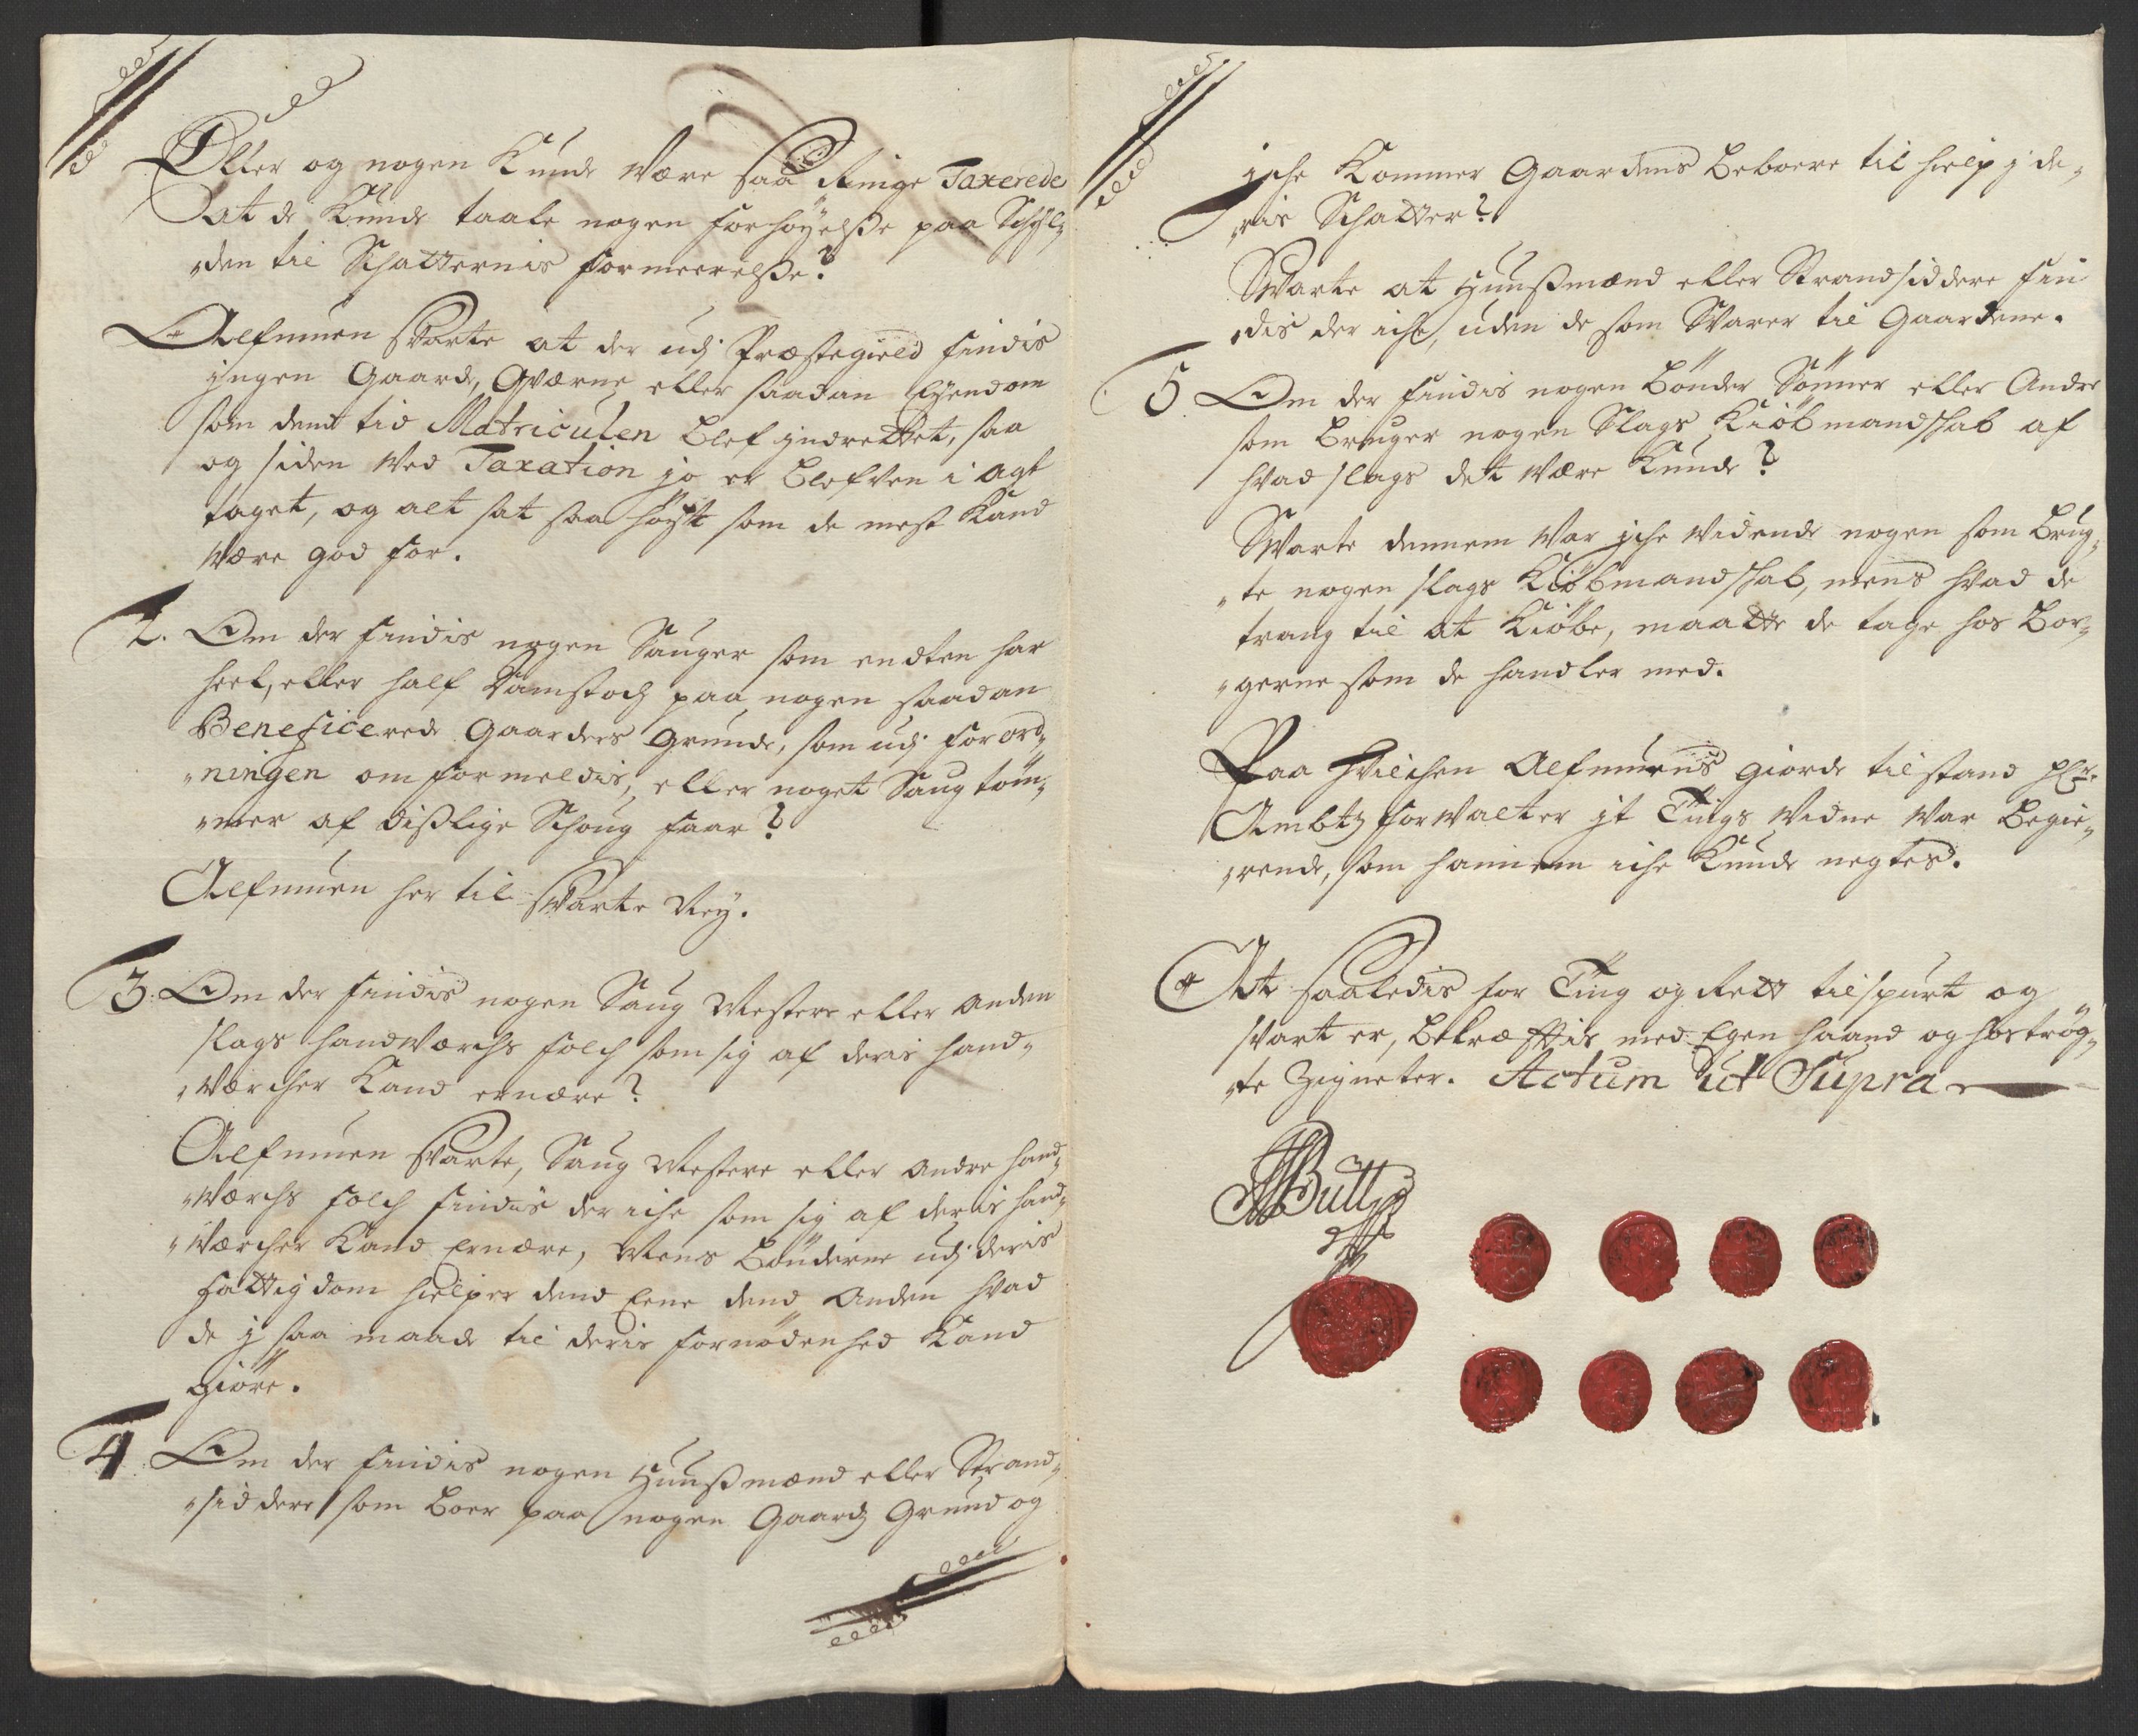 Eller og nogen Kunde være saa Ringe Taxerede
at de Kunde taale nogen forhøyelsse paa Schyl„
„den til Schatternis formeerelsse?
Alfmuen svarte at der udj Præstegield findis
jngen Gaarde, Qværne eller saadan Eyendom
som dend tid Matriculen blef jndrettet, saa
og siden ved Taxation jo er blefven i agt
taget, og alt sat saa høyt som de mest Kand
være god for.
2. Om der findis nogen Sauger som endten har
heel, eller half Damstoch paa nogen saadan
Beneficerede Gaarders grunde, som udj forord„
„ningen om formeldis, eller noget Saugtøm„
„mer af disslige Schoug faar?
Alfmuen her til svarte Ney.
3. Om der findis nogen Saug Mestere eller anden
slags handverchs folch som sig af deris hand„
„værcher Kand ernære?
Alfmuen svarte, Saug Mestere eller andre hand„
„værchs folch findis der iche som sig af deris hand„
„værcher Kand Ernære, Mens bønderne udj deris
fattigdom hielper dend Eene dend anden hvad
de j saa maade til deris fornødenhed Kand
giøre.
4. Om der findis nogen Huussmænd eller Strand„
„siddere som boer paa nogen Gaardz Grund og
iche Kommer Gaardens beboere til hielp j de„
„ris Schatter?
Svarte at Huussmænd eller Strandsiddere fin
„dis der iche, uden de som Svarer til Gaardene.
5. Om der findis nogen bønder Sønner eller Andre
som bruger nogen Slags Kiøbmandschab af
hvad slags det være Kunde?
Svarte dennem var iche vidende nogen som brug„
„te nogen slags Kiøbmandschab, mens hvad de
trang til at Kiøbe, maatte de tage hos bor„
„gerne som de handler med.
Paa hvilchen Alfmuens giorde tilstand hr.
Ambtz forvalter jt Tings vidne var begie„
„rende, som hannem iche Kunde negtes.
At saaledis for Ting og Rett tilspurt og
svart er, bekræfftis med Egen haand og hostrøg„
„te Zigneter. Actum ut Supra